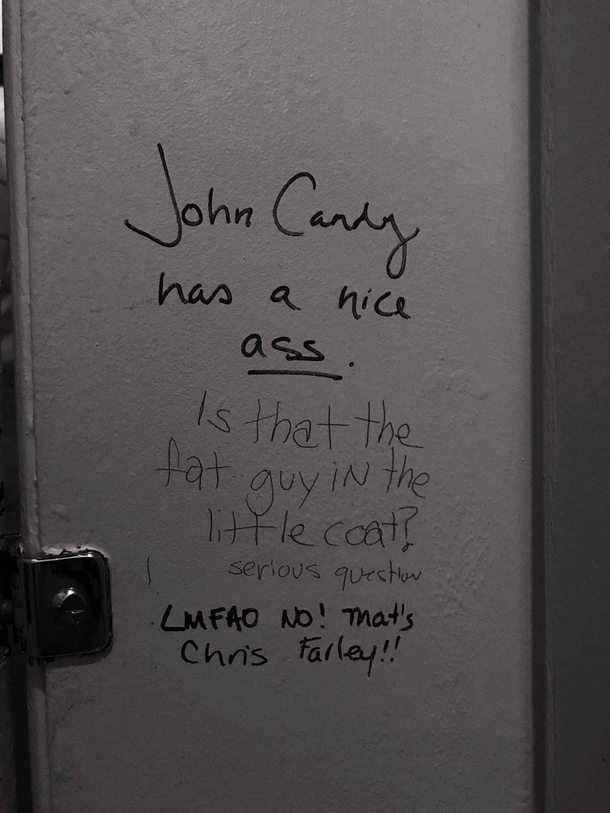 John Candy
has a nice
ass.
Is that the
fat guy iN the
little coat?
serious question
LMFAO NO! That's
Chris Farley!!